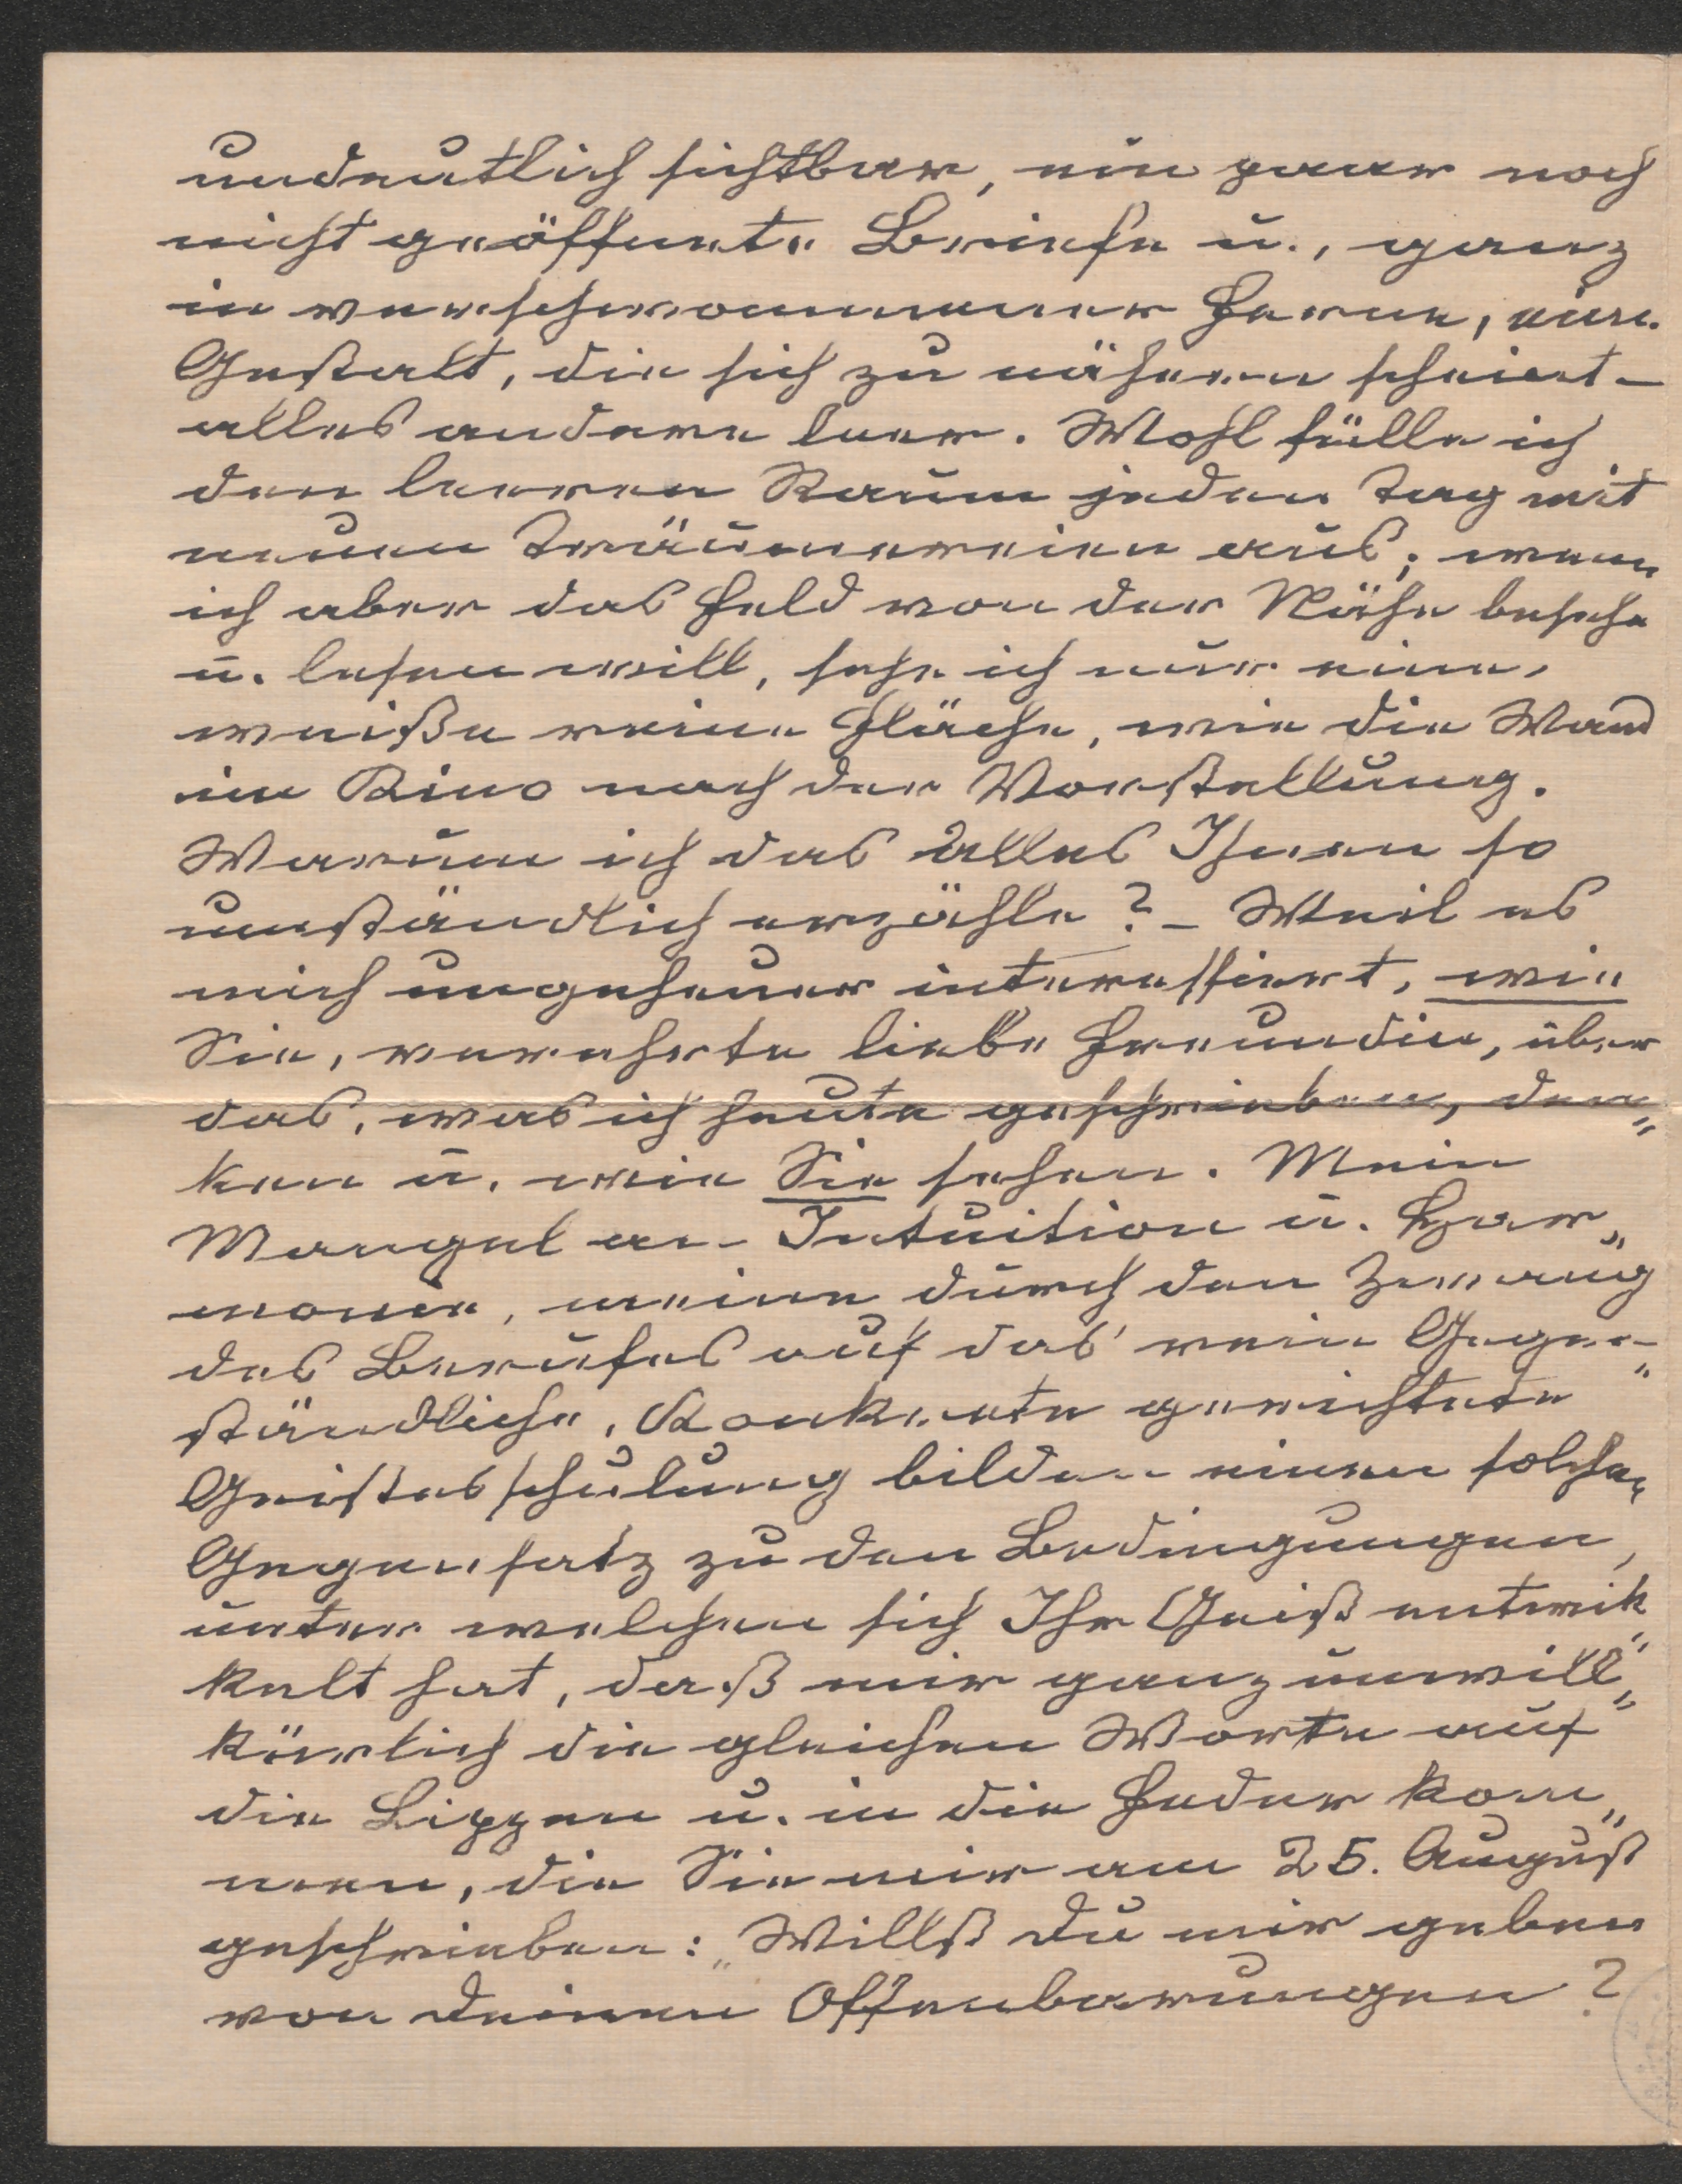 undeutlich sichtbar, ein paar noch
nicht geöffnete Briefe u., ganz
in verschwommener Ferne, eine
Gestalt, die sich zu nähern scheint –
alles andere leer. Wohl fülle ich
den leeren Raum jeden Tag mit
neuen Träumereien aus; wenn
ich aber das Feld von der Nähe besehe
u. lesen will, sehe ich nur eine,
weiße reine Fläche, wie die Wand
im Kino nach der Vorstellung.
Warum ich das alles Ihnen so
umständlich erzähle? – Weil es
mich ungeheuer interessiert, wie
Sie, verehrte liebe Freundin, über
das, was ich heute geschrieben, den„
ken u. wie Sie sehen. Mein
Mangel an Intuition u. Har„
monie, meine durch den Zwang
des Berufes auf das rein Gegen„
ständliche, Konkrete gerichtete
Geistesschulung bilden einen solchen
Gegensatz zu den Bedingungen,
unter welchen sich Ihr Geist entwik„
kelt hat, daß mir ganz unwill„
kürlich die gleichen Worte auf
die Lippen u. in die Feder kom„
men, die Sie mir am 25. August
geschrieben: „Willst Du mir geben
von Deinen Offenbarungen?